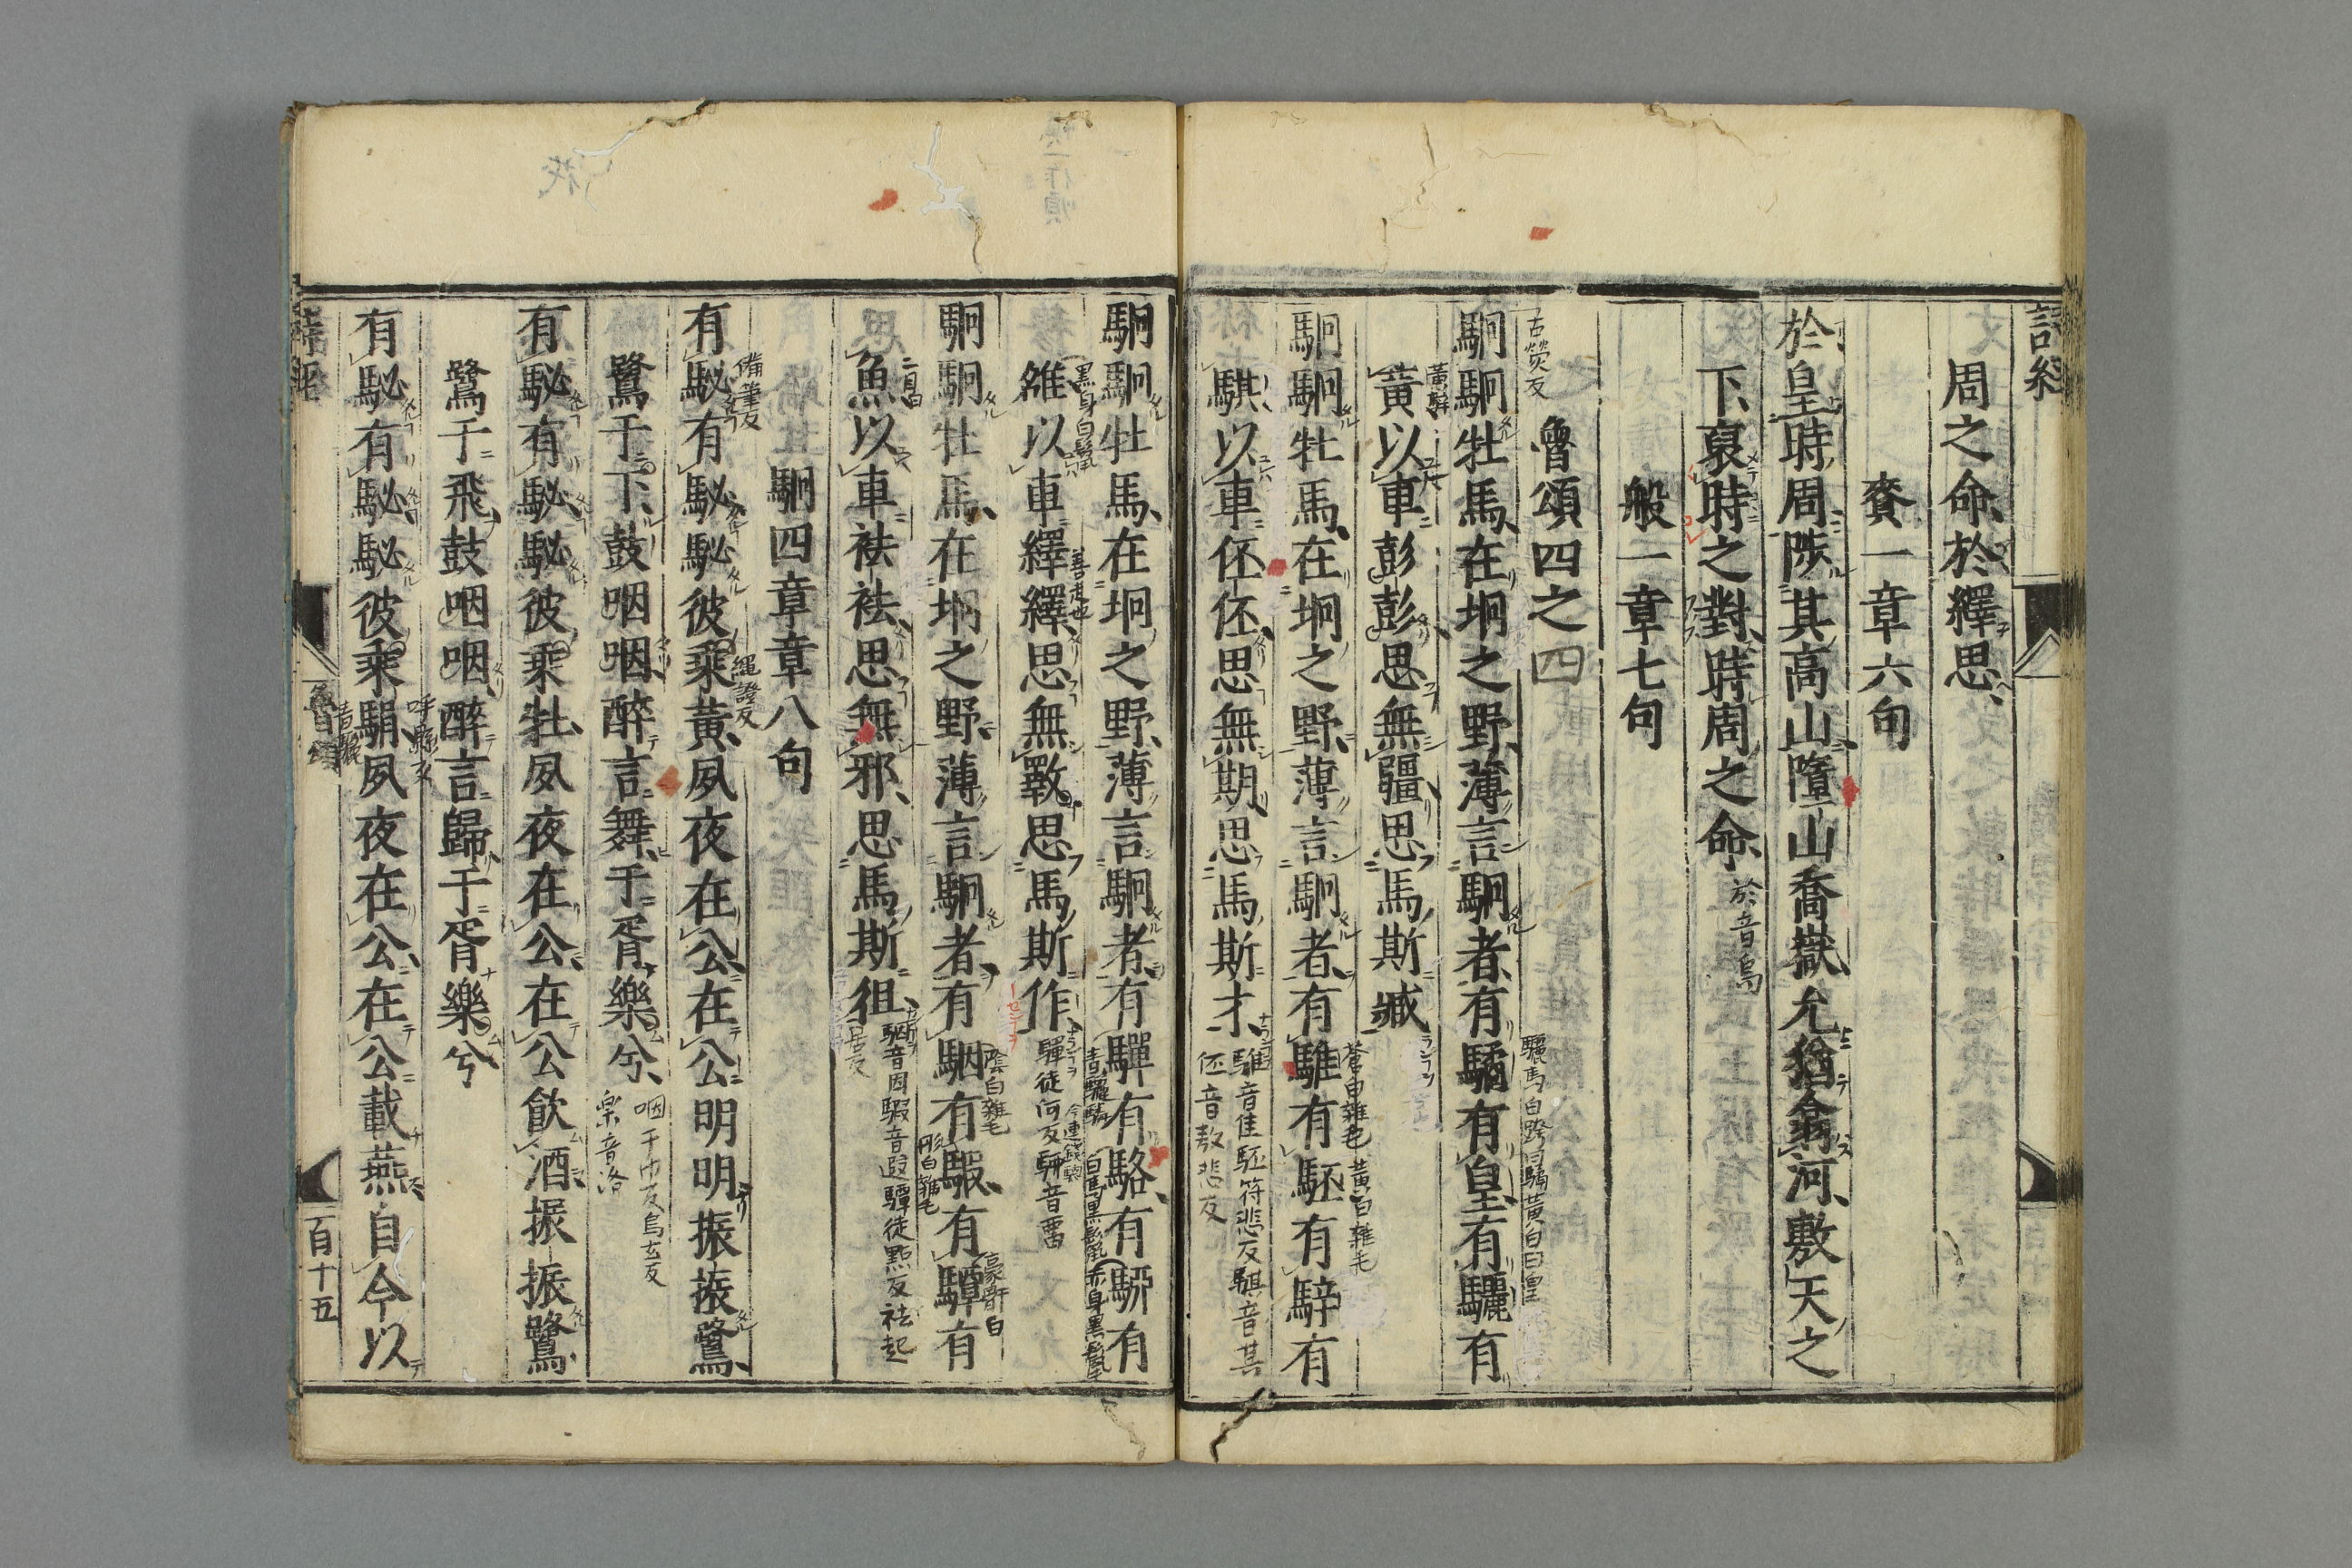 詩經
周之命於繹思
賚一章六句
於皇時周陟其高山隨山喬嶽允猶翕河敷天之
下裒時之對時周之命
於音烏
般一章七句
魯頌四之四
古熒反
駉駉牡馬在坰之野薄言駉者有驈有皇有驪有
驪馬白跨曰驈黃白曰皇
黃騂
黃以車彭彭思無疆思馬斯臧
蒼白雜毛黃白雜毛
駉駉牡馬在坰之野薄言駉者有騅有駓有騂有
騏以車伾伾思無期思馬斯才
騅音隹駓符悲反騏音其
伾音敖悲反
駉駉牡馬在坰之野薄言駉者有驒有駱有駵有
青驪驎
白馬黑鬣
赤身黑鬣
黑身白鬣
雒以車繹繹思無斁思馬斯作
善走也
驒徒何反駵音畱
駉駉牡馬在坰之野薄言駉者有駰有騢有驔有
陰白雜毛
彤白雜毛
豪骭白
二目白
魚以車祛祛思無邪思馬斯徂
駰音因騢音遐驔徒點反祛起
居反
駉四章章八句
備筆反
繩證反
有駜有駜駜彼乘黃夙夜在公在公明明振振鷺
鷺于下鼓咽咽醉言舞于胥樂兮
咽于巾反烏玄反
樂音洛
有駜有駜駜彼乘牡夙夜在公在公飲酒振振鷺
鷺于飛鼓咽咽醉言歸于胥樂兮
呼縣反
有駜有駜駜彼乘駽夙夜在公在公載燕自今以
青驪
詩經
魯頌
百十五